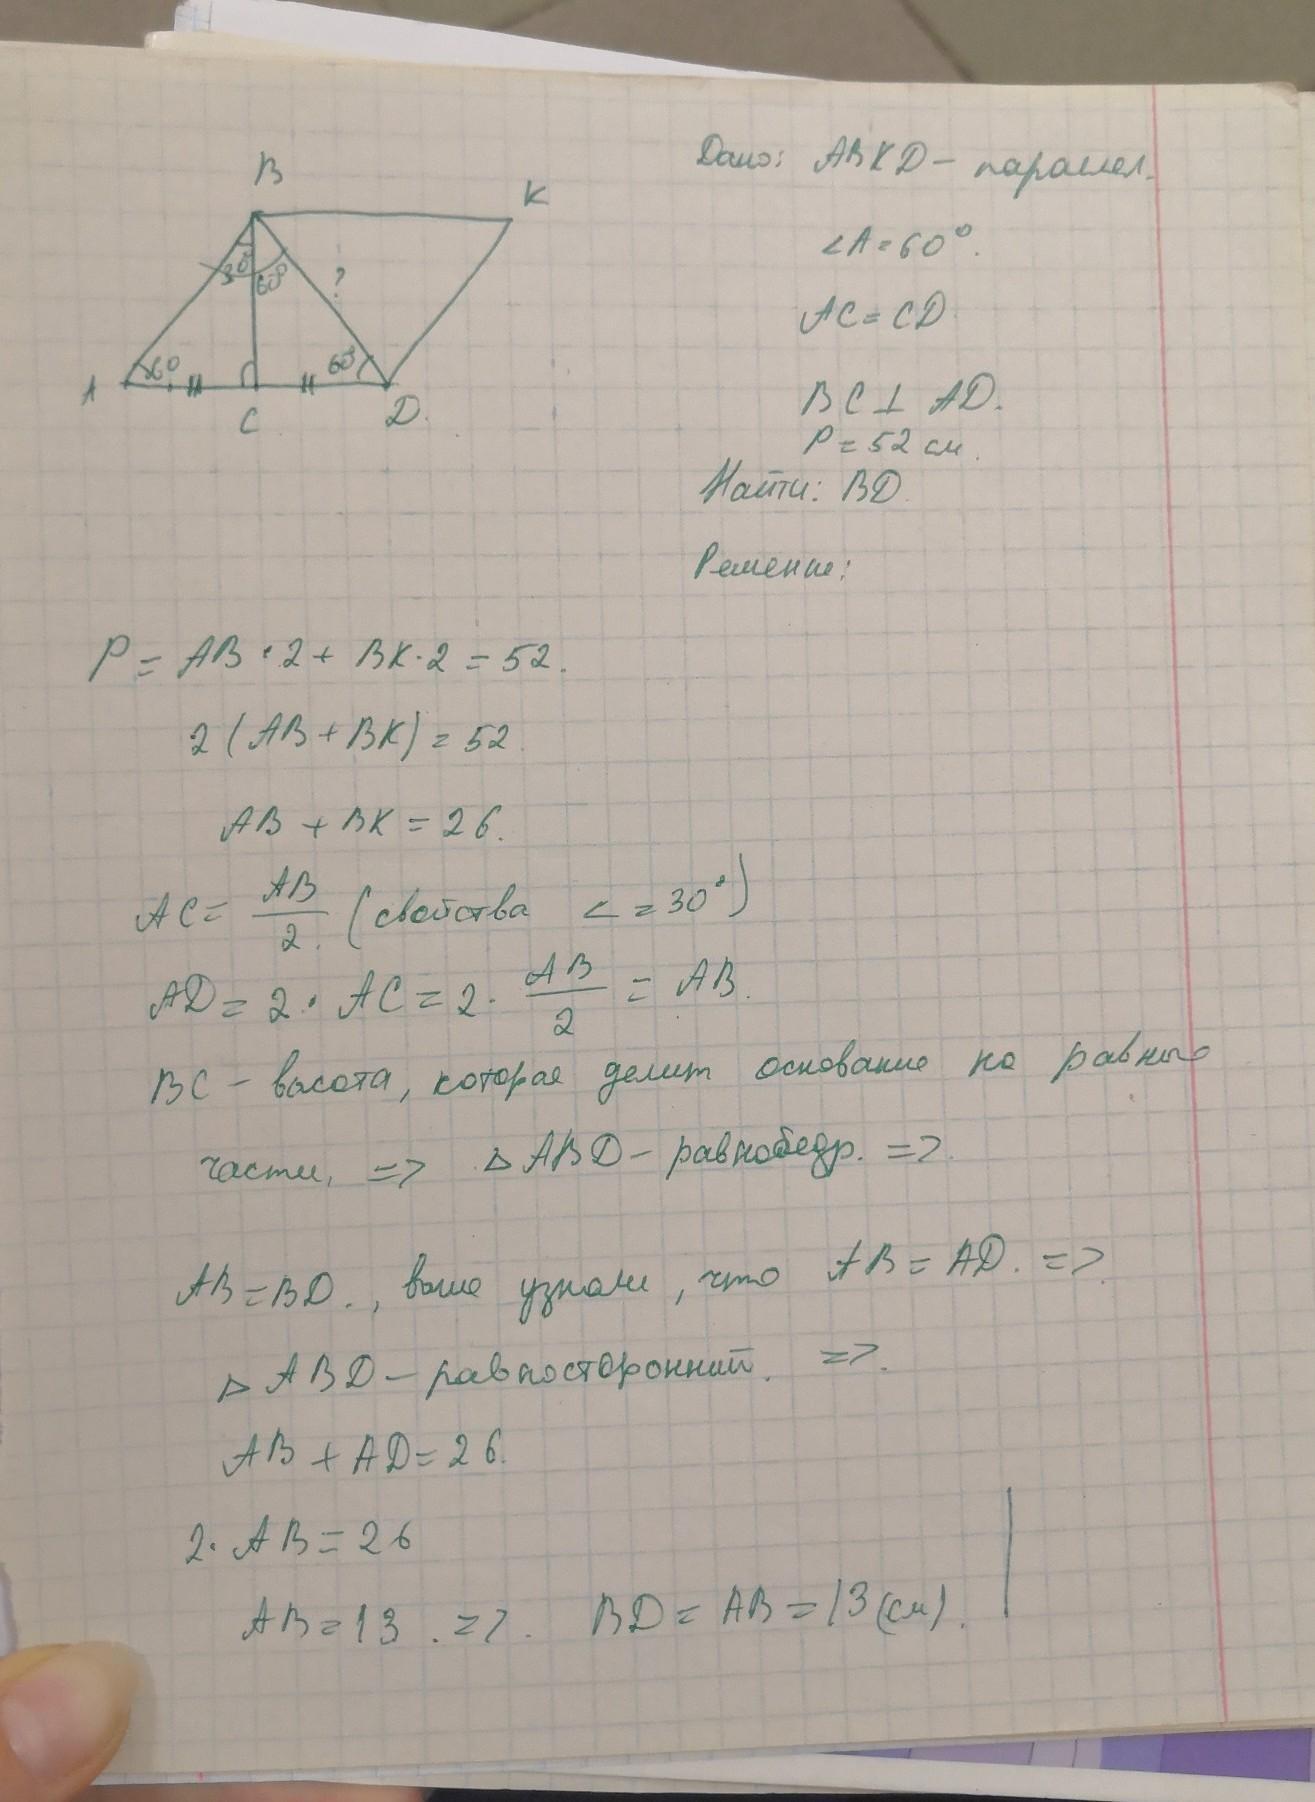 B
K
30°
60°
?
A
60
60°
C
D.
Дано: ABKD – параллел.
∠A = 60°.
AC = CD
BC ⊥ AD.
P = 52 см.
Найти: BD.
Решение:
P = AB · 2 + BK · 2 = 52.
2 (AB + BK) = 52
AB + BK = 26.
AC = AB/2. (свойства ∠ = 30°)
AD = 2 · AC = 2 · AB/2 = AB.
BC – высота, которая делит основание на равные
части, => △ABD – равнобедр. =>.
AB = BD., выше узнали, что AB = AD. =>.
△ABD – равносторонний. =>.
AB + AD = 26.
2. AB = 26
AB = 13. =>. BD = AB = 13 (см).